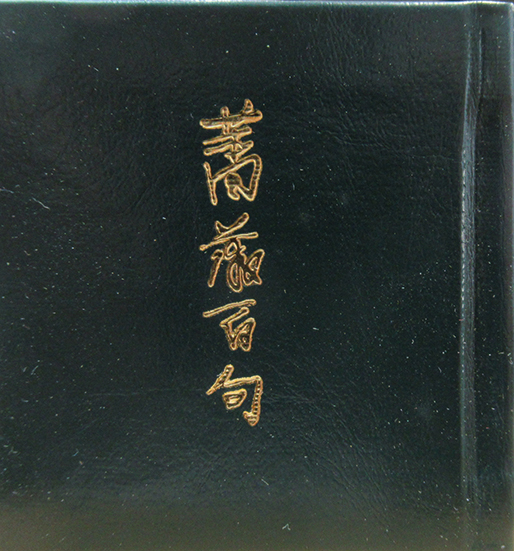 薔薇百句